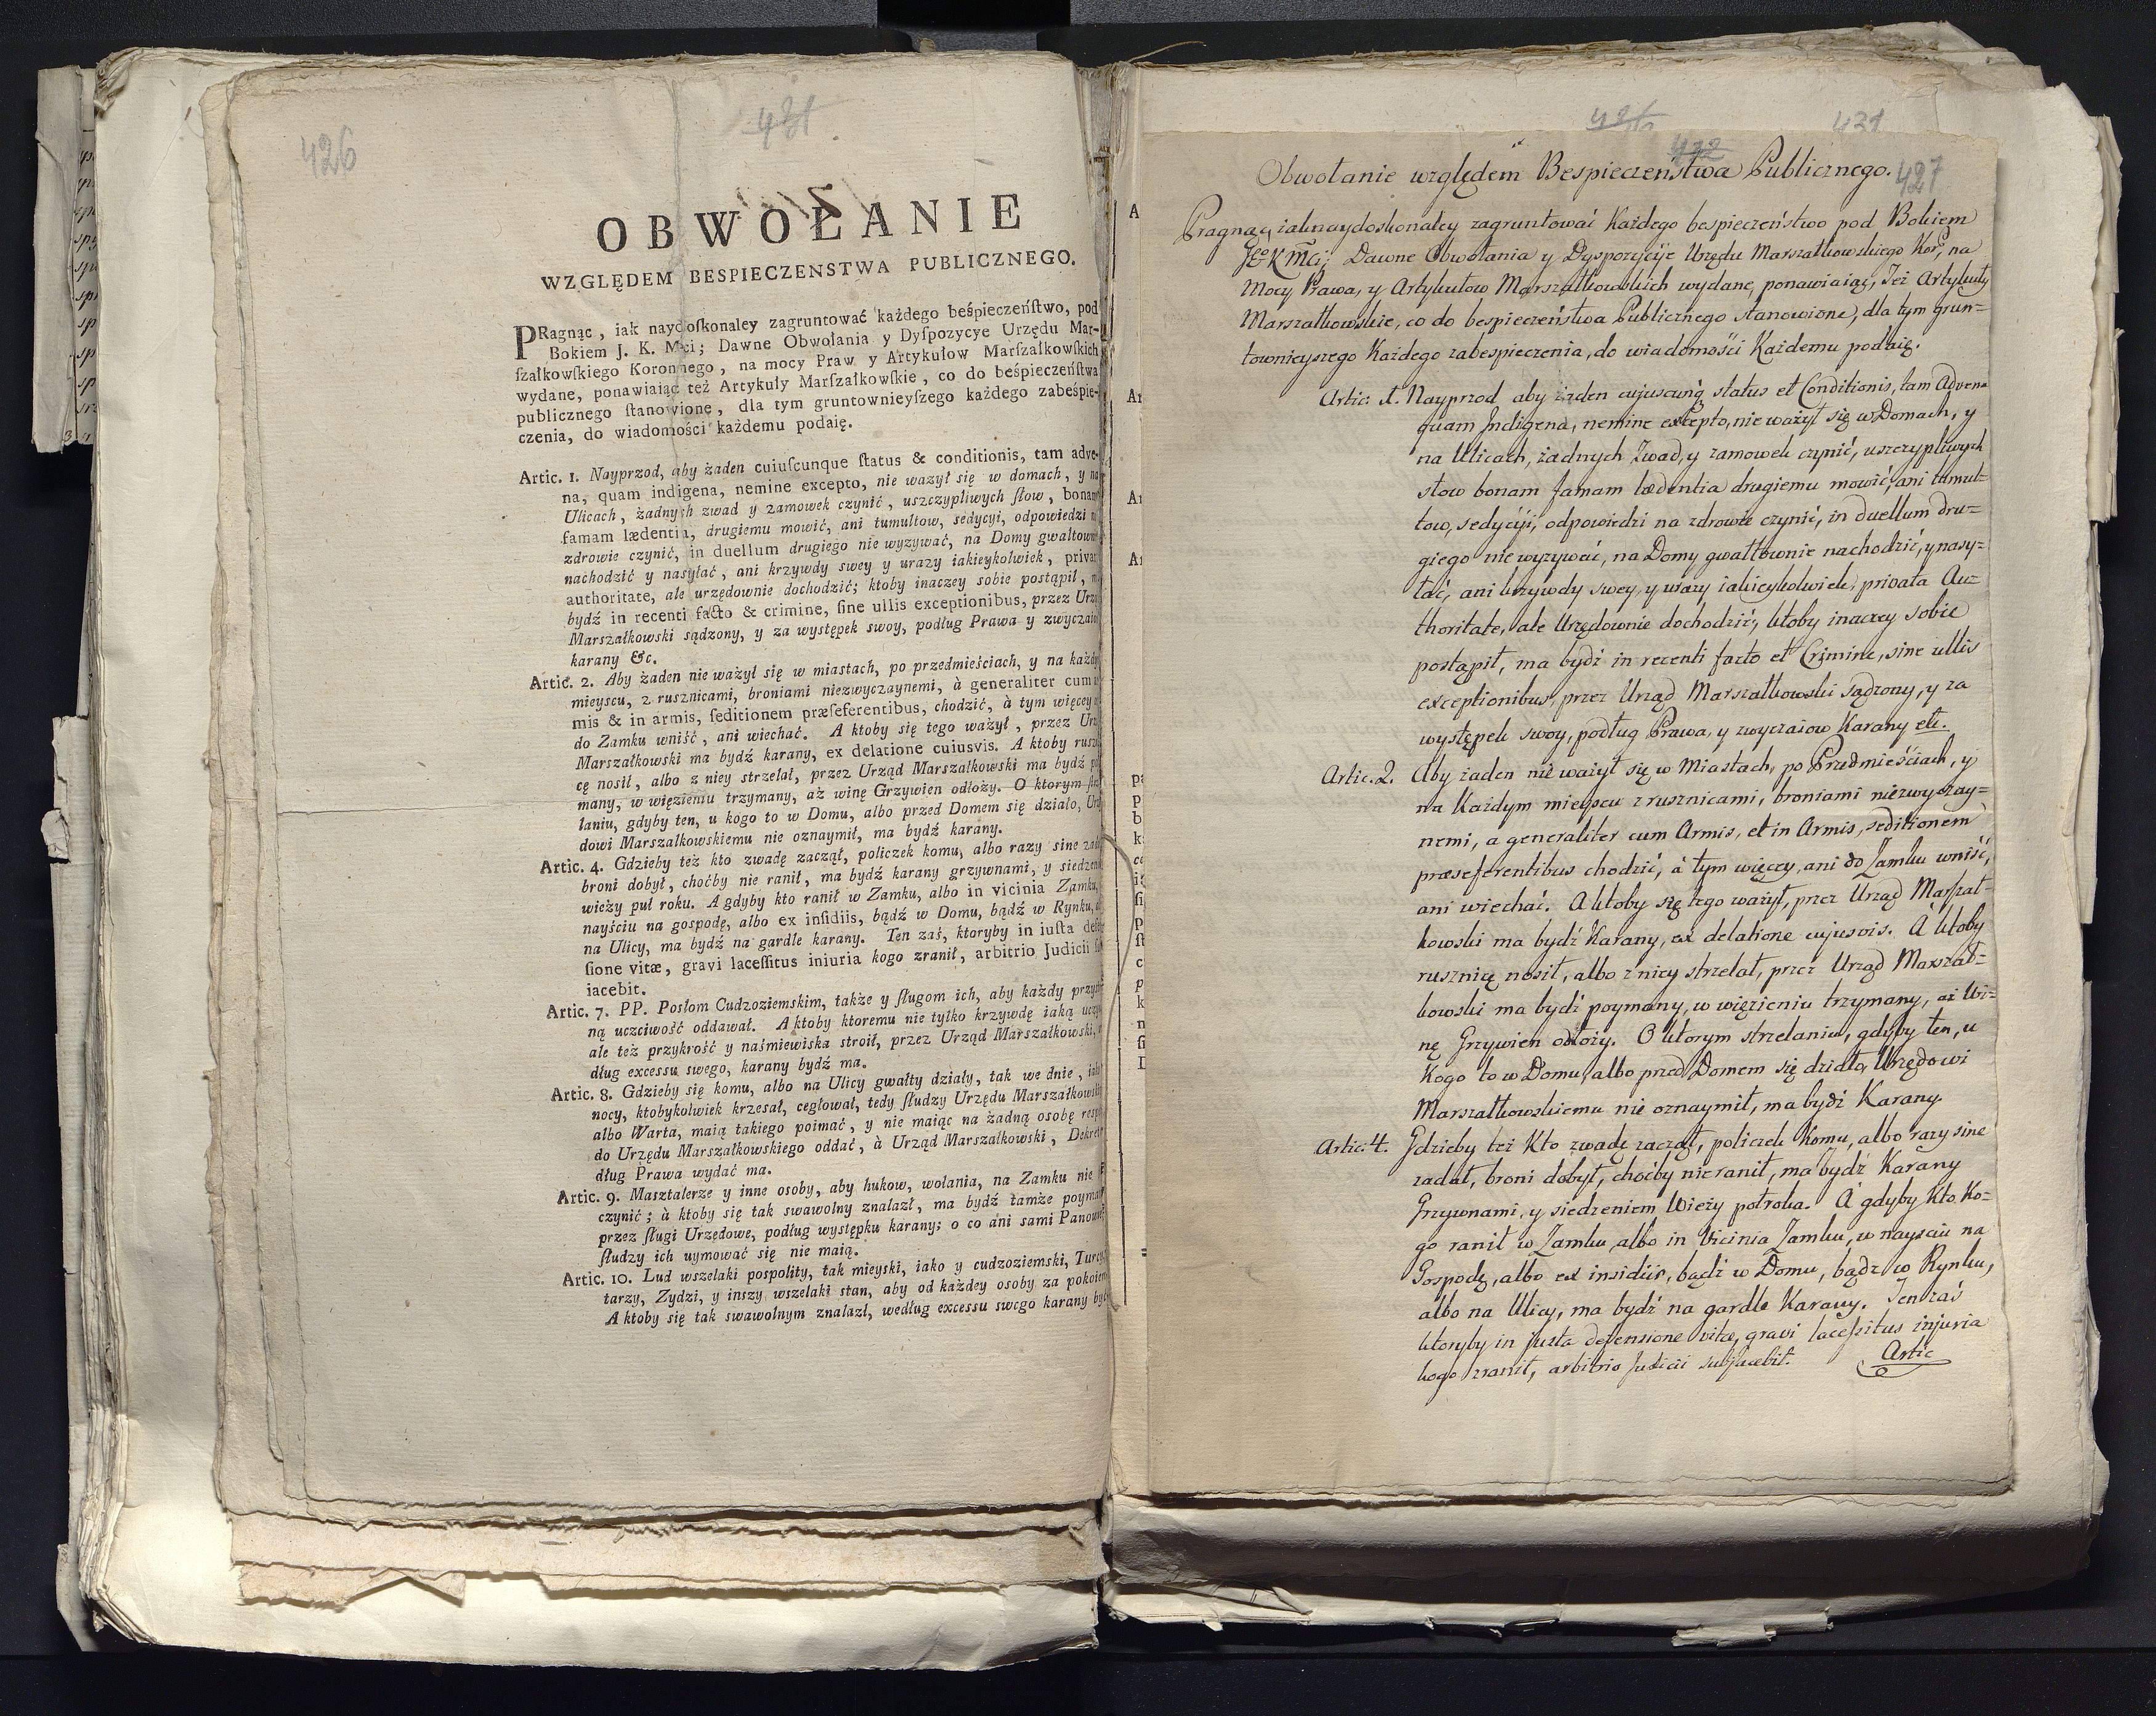 426
431
OBWOŁANIE
WZGLĘDEM BESPIECZENSTWA PUBLICZNEGO.
PRagnąc, iak naydoſkonaley zagruntować każdego beśpieczeńſtwo, pod
Bokiem J. K. Mci; Dawne Obwołania y Dyſpozycye Urzędu Mar-
ſzałkowſkiego Koronnego, na mocy Praw y Artykułow Marſzałkowſkich
wydane, ponawiaiąc też Artykuły Marſzałkowſkie, co do beśpieczeńſtwa
publicznego ſtanowione, dla tym gruntownieyſzego każdego zabeśpie-
czenia, do wiadomości każdemu podaię.
Artic. 1. Nayprzod, aby żaden cuiuſcunque ſtatus & conditionis, tam adve-
na, quam indigena, nemine excepto, nie ważył się w domach, y na
Ulicach, żadnych zwad y zamowek czynić, uszczypliwych ſłow, bonam
famam lædentia, drugiemu mowić, ani tumultow, sedycyi, odpowiedzi n
zdrowie czynić, in duellum drugiego nie wyzywać, na Domy gwałtown
nachodzić y nasyłać, ani krzywdy swey y urazy iakieykolwiek, priva
authoritate, ale urzędownie dochodzić; ktoby inaczey sobie postąpił, m
bydź in recenti facto & crimine, ſine ullis exceptionibus, przez Urz
Marszałkowski sądzony, y za występek swoy, podług Prawa y zwyczaiu
karany &c.
Artic. 2. Aby żaden nie ważył się w miastach, po przedmieściach, y na każdy
mieyscu, z rusznicami, broniami niezwyczaynemi, à generaliter cum
mis & in armis, ſeditionem præſeferentibus, chodzić, à tym więcey
do Zamku wniść, ani wiechać. A ktoby się tego ważył, przez Urz
Marszałkowski ma bydź karany, ex delatione cuiusvis. A ktoby rusz
cę nosił, albo z niey strzelał, przez Urząd Marszałkowski ma bydź p
many, w więzieniu trzymany, aż winę Grzywien odłoży. O ktorym ſtr
laniu, gdyby ten, u kogo to w Domu, albo przed Domem się działo, Urz
dowi Marszałkowskiemu nie oznaymił, ma bydź karany.
Artic. 4. Gdzieby też kto zwadę zaczął, policzek komu, albo razy sine zad
broni dobył, choćby nie ranił, ma bydź karany grzywnami, y siedzen
wieży puł roku. A gdyby kto ranił w Zamku, albo in vicinia Zamku,
nayściu na gospodę, albo ex inſidiis, bądź w Domu, bądź w Rynku,
na Ulicy, ma bydź na gardle karany. Ten zaś, ktoryby in iuſta defen
ſione vitæ, gravi laceſſitus iniuria kogo zranił, arbitrio Judicii ſub
iacebit.
Artic. 7. PP. Posłom Cudzoziemskim, także y ſługom ich, aby każdy przy
ną uczciwość oddawał. A ktoby ktoremu nie tylko krzywdę iaką uczy
ale też przykrość y naśmiewiska stroił, przez Urząd Marszałkowski,
dług excessu swego, karany bydź ma.
Artic. 8. Gdzieby się komu, albo na Ulicy gwałty działy, tak we dnie, iak
nocy, ktobykolwiek krzesał, cegłował, tedy ſłudzy Urzędu Marszałkow
albo Warta, maią takiego poimać, y nie maiąc na żadną osobę resp
do Urzędu Marszałkowskiego oddać, à Urząd Marszałkowski, Dekret
dług Prawa wydać ma.
Artic. 9. Masztalerze y inne osoby, aby hukow, wołania, na Zamku nie
czynić; à ktoby się tak swawolny znalazł, ma bydź tamże poyma
przez ſługi Urzędowe, podług występku karany; o co ani sami Panow
ſłudzy ich uymować się nie maią.
Artic. 10. Lud wszelaki pospolity, tak mieyski, iako y cudzoziemski, Turcy
tarzy, Zydzi, y inszy wszelaki stan, aby od każdey osoby za pokoiem
A ktoby się tak swawolnym znalazł, według excessu swego karany by
431
432
427
Obwołanie względem Bespieczenstwa Publicznego.
Pragnąc iaknaydoskonaley zagruntować Każdego bespieczeństwo pod Bokiem
JEo K Mci; Dawne Obwołania y Dyspozycye Urzędu Marszałkowskiego Kor, na
Mocy Prawa, y Artykułow Marszałkowskich wydane, ponawiaiąc, Też Artykuły
Marszałkowskie, co do bespieczeństwa Publicznego stanowione, dla tym grun=
townieyszego Każdego zabespieczenia, do wiadomości Każdemu podaię.
Artic. 1. Nayprzod aby żaden cujuscunq status et Conditionis, tam Advena
quam Indigena, nemine excepto, nie ważył się w Domach, y
na Ulicach, żadnych Zwad, y zamowek czynić, uszczypliwych
słow bonam famam lædentia drugiemu mowić, ani tumul=
tow, sedycyi, odpowiedzi na zdrowie czynić, in duellum dru=
giego nie wyzywać, na Domy gwałtownie nachodzić, y nasy=
łać, ani krzywdy swey, y urazy iakieykolwiek, privata Au=
thoritate, ale Urzędownie dochodzić, ktoby inaczey sobie
postąpił, ma bydź in recenti facto et Crimine, sine ullis
exceptionibus, przez Urząd Marszałkowski Sądzony, y za
występek swoy, podług Prawa, y zwyczaiow Karany etc.
Artic. 2. Aby żaden nie ważył się w Miastach, po Przedmieściach, y
na Każdym mieyscu z rusznicami, broniami niezwyczay=
nemi, a generaliter cum Armis, et in Armis, seditionem
præseferentibus chodzić, à tym więcey, ani do Zamku wniść,
ani wiechać. A ktoby się tego ważył, przez Urząd Marszał=
kowski ma bydź Karany, ex delatione cujusvis. A ktoby
rusznicę nosił, albo z niey strzelał, przez Urząd Marszał=
kowski ma bydź poymany, w więzieniu trzymany, aż Wi=
nę Grzywien odłoży. O ktorym strzelaniu, gdyby ten, u
Kogo to w Domu, albo przed Domem się działo, Urzędowi
Marszałkowskiemu nie oznaymił, ma bydź Karany.
Artic. 4. Gdzieby też Kto zwadę zaczął, policzek Komu, albo razy sine
zadał, broni dobył, choćby nie ranił, ma bydź Karany
Grzywnami, y siedzeniem Wieży połroka. A gdyby Kto Ko=
go ranił w Zamku, albo in Vicinia Zamku, w nayściu na
Gospodę, albo ex insidiis, bądź w Domu, bądź w Rynku,
albo na Ulicy, ma bydź na gardle Karany. Ten zaś
ktoryby in justa defensione vitæ, gravi lacessitus injuria
kogo zranił, arbitrio Judicii subjacebit.
Artic